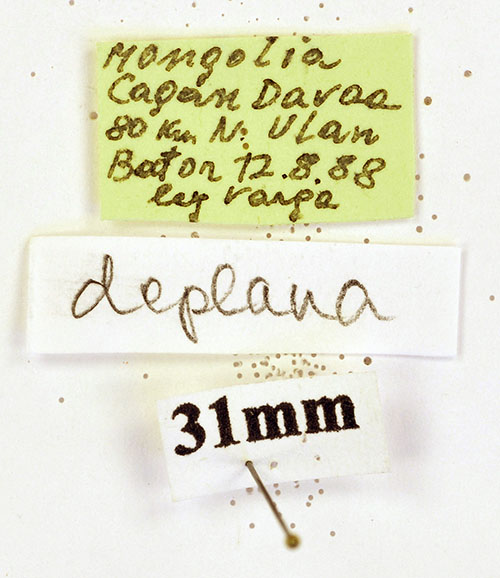 Mongolia
Cagan Davaa
80 km N. Ulan
Bator 12.8.88
leg Varga
deplana
31mm